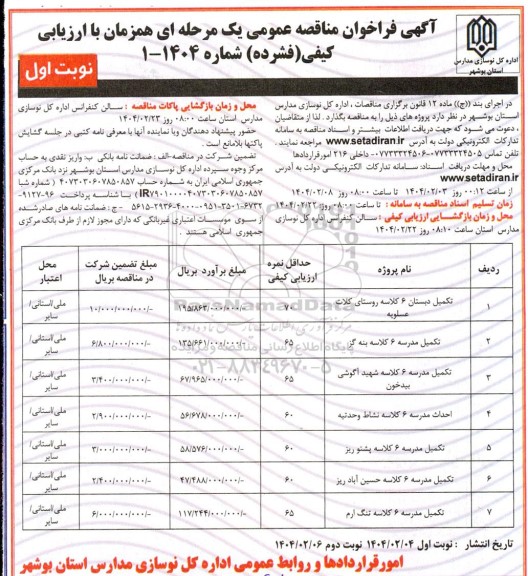 آگهی فراخوان مناقصه عمومی یک مرحله ای همزمان با ارزیابی
کیفی(فشرده) شماره ۱۴۰۴-۱
نوبت اول
اداره کل نوسازی مدارس
استان بوشهر
در اجرای بند ((ج)) ماده ۱۲ قانون برگزاری مناقصات ، اداره کل نوسازی مدارس
استان بوشهر در نظر دارد پروژه های ذیل را به مناقصه بگذارد . لذا از متقاضیان
، دعوت می شود که جهت دریافت اطلاعات بیشتر و اسناد مناقصه به سامانه
تدارکات الکترونیکی دولت به آدرس www.setadiran.ir مراجعه نمایند .
تلفن تماس ۰۷۷۳۳۳۲۴۵۰۵-۰۷۷۳۳۳۲۴۵۰۶ داخلی ۲۱۶ امور قراردادها
محل و مهلت دریافت اسناد: سامانه تدارکات الکترونیکی دولت به آدرس
www.setadiran.ir
از ساعت ۰۰:۱۲ روز ۱۴۰۴/۰۲/۰۳ تا ساعت ۰۸:۰۰ روز ۱۴۰۴/۰۲/۰۸
زمان تسلیم اسناد مناقصه به سامانه : تا ساعت ۰۸:۰۰ روز ۱۴۰۴/۰۲/۲۲
محل و زمان بازگشایی ارزیابی کیفی : سالن کنفرانس اداره کل نوسازی
مدارس استان ساعت ۰۸:۱۰ روز ۱۴۰۴/۰۲/۲۲
محل و زمان بازگشایی پاکات مناقصه : سالن کنفرانس اداره کل نوسازی
مدارس استان ساعت ۰۸:۰۰ روز ۱۴۰۴/۰۲/۲۳
حضور پیشنهاد دهندگان ویا نماینده آنها با معرفی نامه کتبی در جلسه گشایش
پاکتها بلامانع است .
تضمین شرکت در مناقصه-الف : ضمانت نامه بانکی ب: واریز نقدی به حساب
مرکز وجوه سپرده اداره کل نوسازی مدارس استان بوشهر نزد بانک مرکزی
جمهوری اسلامی ایران به شماره حساب ۴۰۷۳۰۳۰۶۰۷۸۵۰۸۵۷ ( شماره شبا
با شناسه پرداخت
ج : ضمانت نامه های صادر شده
از سوی موسسات اعتباری غیربانکی که دارای مجوز لازم از طرف بانک مرکزی
جمهوری اسلامی هستند .
ردیف | نام پروژه | حداقل نمره ارزیابی کیفی | مبلغ برآورد بریال | مبلغ تضمین شرکت در مناقصه بریال | محل اعتبار
۱ | تکمیل دبستان ۶ کلاسه روستای کلات عسلویه | ۷۰ | ۱۹۵/۸۶۳/۰۰۰/۰۰۰/- | ۱۰/۰۰۰/۰۰۰/۰۰۰/- | ملی/استانی/سایر
۲ | تکمیل مدرسه ۶ کلاسه بنه گز | ۶۵ | ۱۳۵/۶۶۱/۰۰۰/۰۰۰/- | ۶/۸۰۰/۰۰۰/۰۰۰/- | ملی/استانی/سایر
۳ | تکمیل مدرسه ۶ کلاسه شهید آگوشی بیدخون | ۶۵ | ۶۷/۹۶۵/۰۰۰/۰۰۰/- | ۳/۴۰۰/۰۰۰/۰۰۰/- | ملی/استانی/سایر
۴ | احداث مدرسه ۶ کلاسه نشاط وحدتیه | ۶۰ | ۵۶/۶۷۸/۰۰۰/۰۰۰/- | ۲/۹۰۰/۰۰۰/۰۰۰/- | ملی/استانی/سایر
۵ | تکمیل مدرسه ۶ کلاسه پشتو ریز | ۶۰ | ۵۸/۵۷۶/۰۰۰/۰۰۰/- | ۳/۰۰۰/۰۰۰/۰۰۰/- | ملی/استانی/سایر
۶ | تکمیل مدرسه ۶ کلاسه حسین آباد ریز | ۶۰ | ۴۷/۴۸۸/۰۰۰/۰۰۰/- | ۲/۴۰۰/۰۰۰/۰۰۰/- | ملی/استانی/سایر
۷ | تکمیل مدرسه ۶ کلاسه تنگ ارم | ۶۵ | ۱۱۷/۲۴۴/۰۰۰/۰۰۰/- | ۶/۰۰۰/۰۰۰/۰۰۰/- | ملی/استانی/سایر
ParsNamadData
پایگاه اطلاع رسانی مناقصه و مزایده
۰۲۱-۸۸۳۴۹۶۷۰-۵
تاریخ انتشار : نوبت اول ۱۴۰۴/۰۲/۰۴ نوبت دوم ۱۴۰۴/۰۲/۰۶
امور قراردادها و روابط عمومی اداره کل نوسازی مدارس استان بوشهر